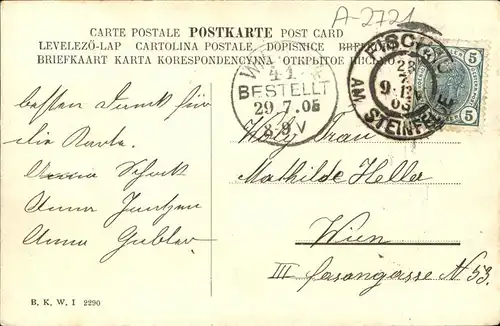 A-2721
CARTE POSTALE POSTKARTE POST CARD
LEVELEZŐ-LAP CARTOLINA POSTALE DOPISNICE
BRIEFKAART KARTA KORESPONDENCYJNA ОТКРЫТОЕ ПИСЬМО
4/1
BESTELLT
29.7.05
8-9 V
AM STEINFELDE
5
5
besten Dank für
die Karte.
Anna
Anna
Anna Gubler
Frau
Mathilde Heller
Wien
III Fasangasse N 53.
B. K. W. I 2290